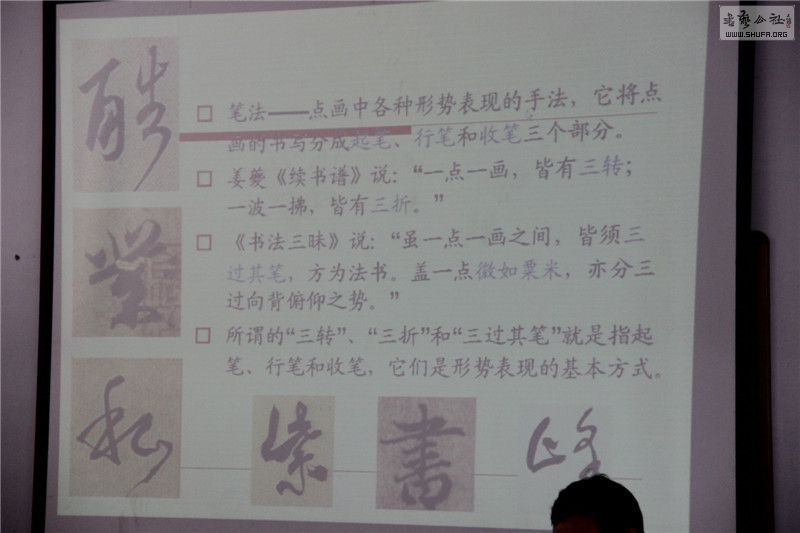 書藝公社
WWW.SHUFA.ORG
笔法——点画中各种形势表现的手法，它将点
画的书写分成起笔、行笔和收笔三个部分。
姜夔《续书谱》说：“一点一画，皆有三转；
一波一拂，皆有三折。”
《书法三昧》说：“虽一点一画之间，皆须三
过其笔，方为法书。盖一点微如粟米，亦分三
过向背俯仰之势。”
所谓的“三转”、“三折”和“三过其笔”就是指起
笔、行笔和收笔，它们是形势表现的基本方式。
書
峰